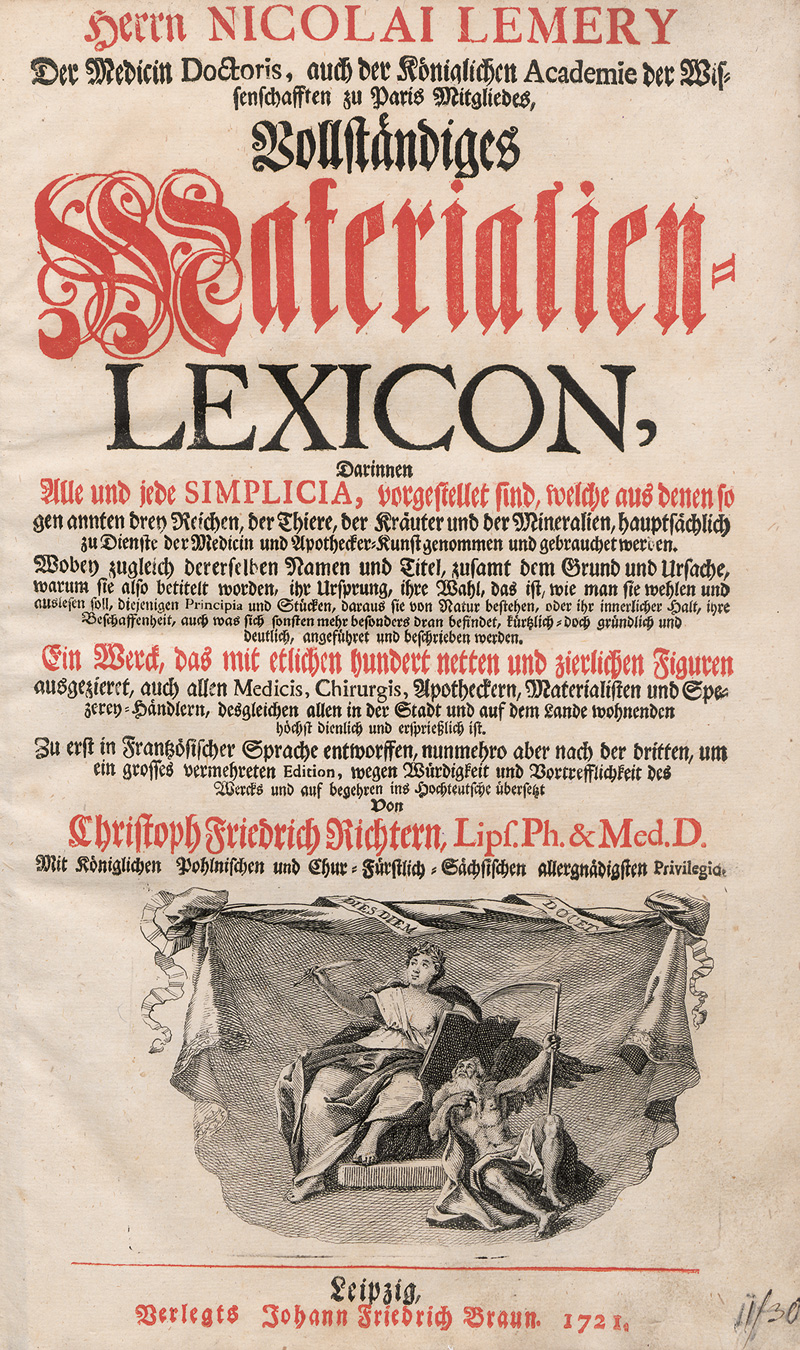 Herrn NICOLAI LEMERY
Der Medicin Doctoris, auch der Königlichen Academie der Wis-
senschafften zu Paris Mitgliedes,
Vollständiges
Materialien-
LEXICON,
Darinnen
Alle und jede SIMPLICIA, vorgestellet sind, welche aus denen so
genannten drey Reichen, der Thiere, der Kräuter und der Mineralien, hauptsächlich
zu Dienste der Medicin und Apothecker-Kunst genommen und gebrauchet werden.
Wobey zugleich dererselben Namen und Titel, zusamt dem Grund und Ursache,
warum sie also betitelt worden, ihr Ursprung, ihre Wahl, das ist, wie man sie wehlen und
auslesen soll, diejenigen Principia und Stücken, daraus sie von Natur bestehen, oder ihr innerlicher Halt, ihre
Beschaffenheit, auch was sich sonsten mehr besonders dran befindet, kürtzlich-doch gründlich und
deutlich, angeführet und beschrieben werden.
Ein Werck, das mit etlichen hundert netten und zierlichen Figuren
ausgezieret, auch allen Medicis, Chirurgis, Apotheckern, Materialisten und Spe-
zerey-Händlern, desgleichen allen in der Stadt und auf dem Lande wohnenden
höchst dienlich und ersprießlich ist.
Zu erst in Frantzösischer Sprache entworffen, nunmehro aber nach der dritten, um
ein grosses vermehreten Edition, wegen Würdigkeit und Vortrefflichkeit des
Wercks und auf begehren ins Hochteutsche übersetzt
Von
Christoph Friedrich Richtern, Lips. Ph. & Med. D.
Mit Königlichen Pohlnischen und Chur-Fürstlich-Sächsischen allergnädigsten Privilegio.
DIES DIEM DOCET
Leipzig,
Verlegts Johann Friedrich Braun. 1721.